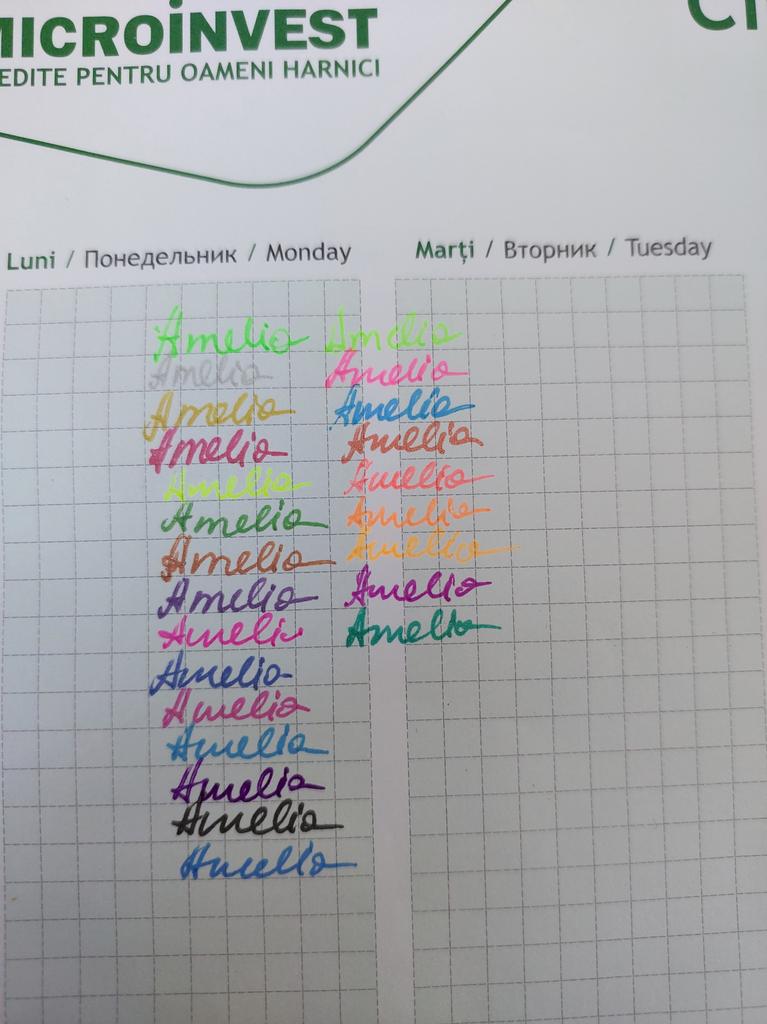 MICROINVEST
EDITE PENTRU OAMENI HARNICI
Luni / Понедельник / Monday
Marți / Вторник / Tuesday
Amelia Amelia
Amelia Amelia
Amelia Amelia
Amelia Amelia
Amelia Amelia
Amelia Amelia
Amelia Amelia
Amelia Amelia
Ameli Amelia
Amelia
Amelia
Amelia
Amelia
Amelia
Amelia